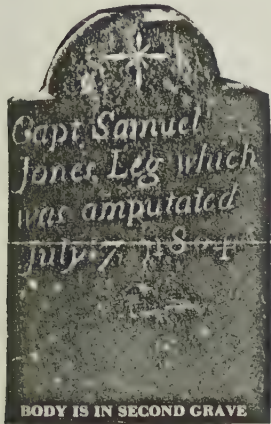 Capt Samuel
Jones Leg which
was amputated
July 7, 1804
BODY IS IN SECOND GRAVE